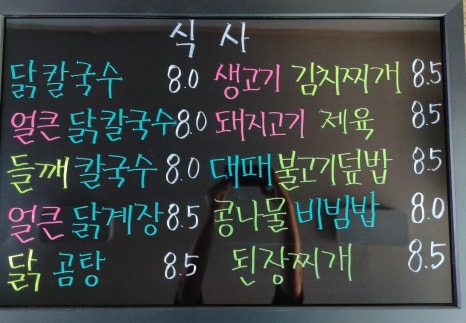 식사
닭칼국수 8.0 생고기 김치찌개 8.5
얼큰 닭칼국수 8.0 돼지고기 제육 8.5
들깨 칼국수 8.0 대패불고기덮밥 8.5
얼큰 닭계장 8.5 콩나물 비빔밥 8.0
닭 곰탕 8.5 된장찌개 8.5